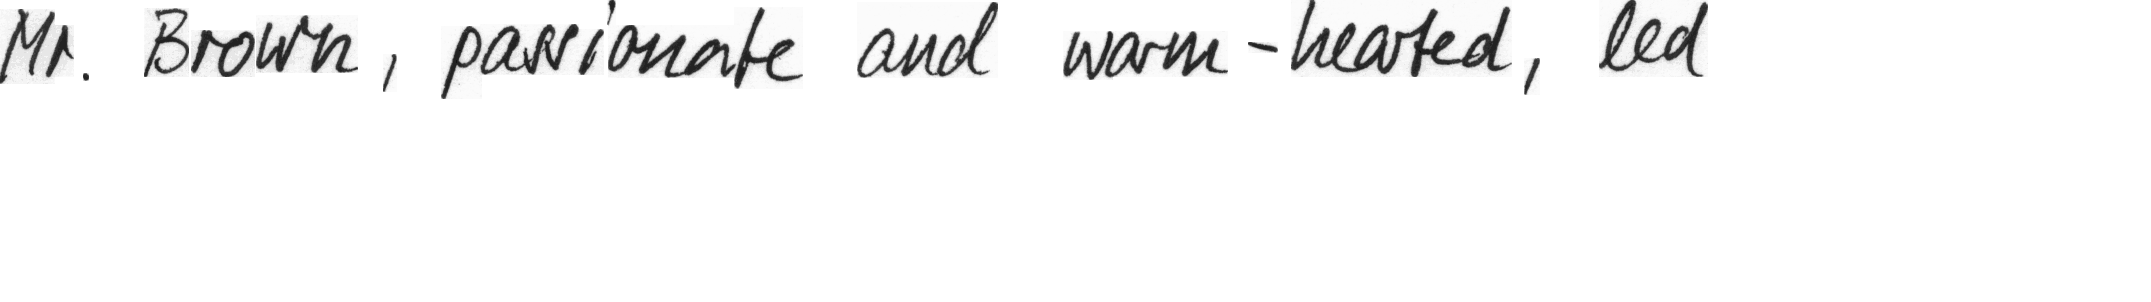 Mr. Brown, passionate and warm-hearted, led